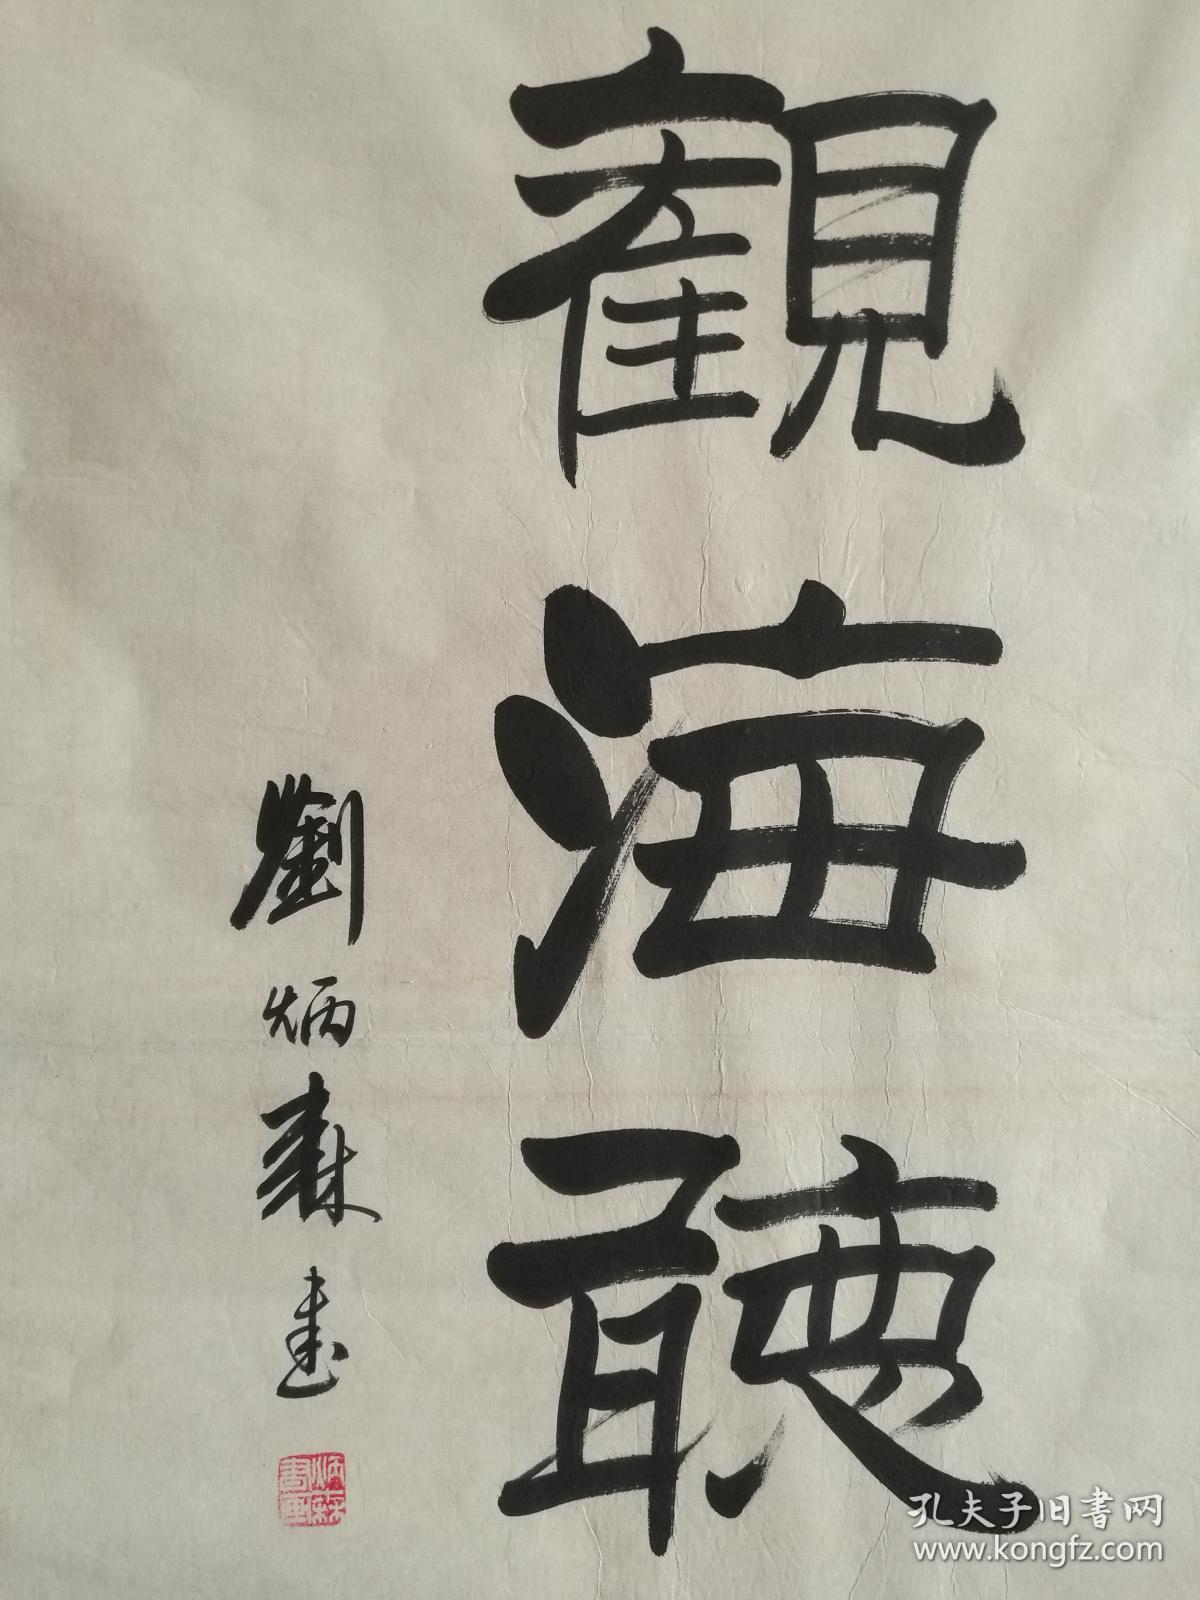 觀海聽
劉炳森書
炳森書畫
孔夫子旧书网
www.kongfz.com